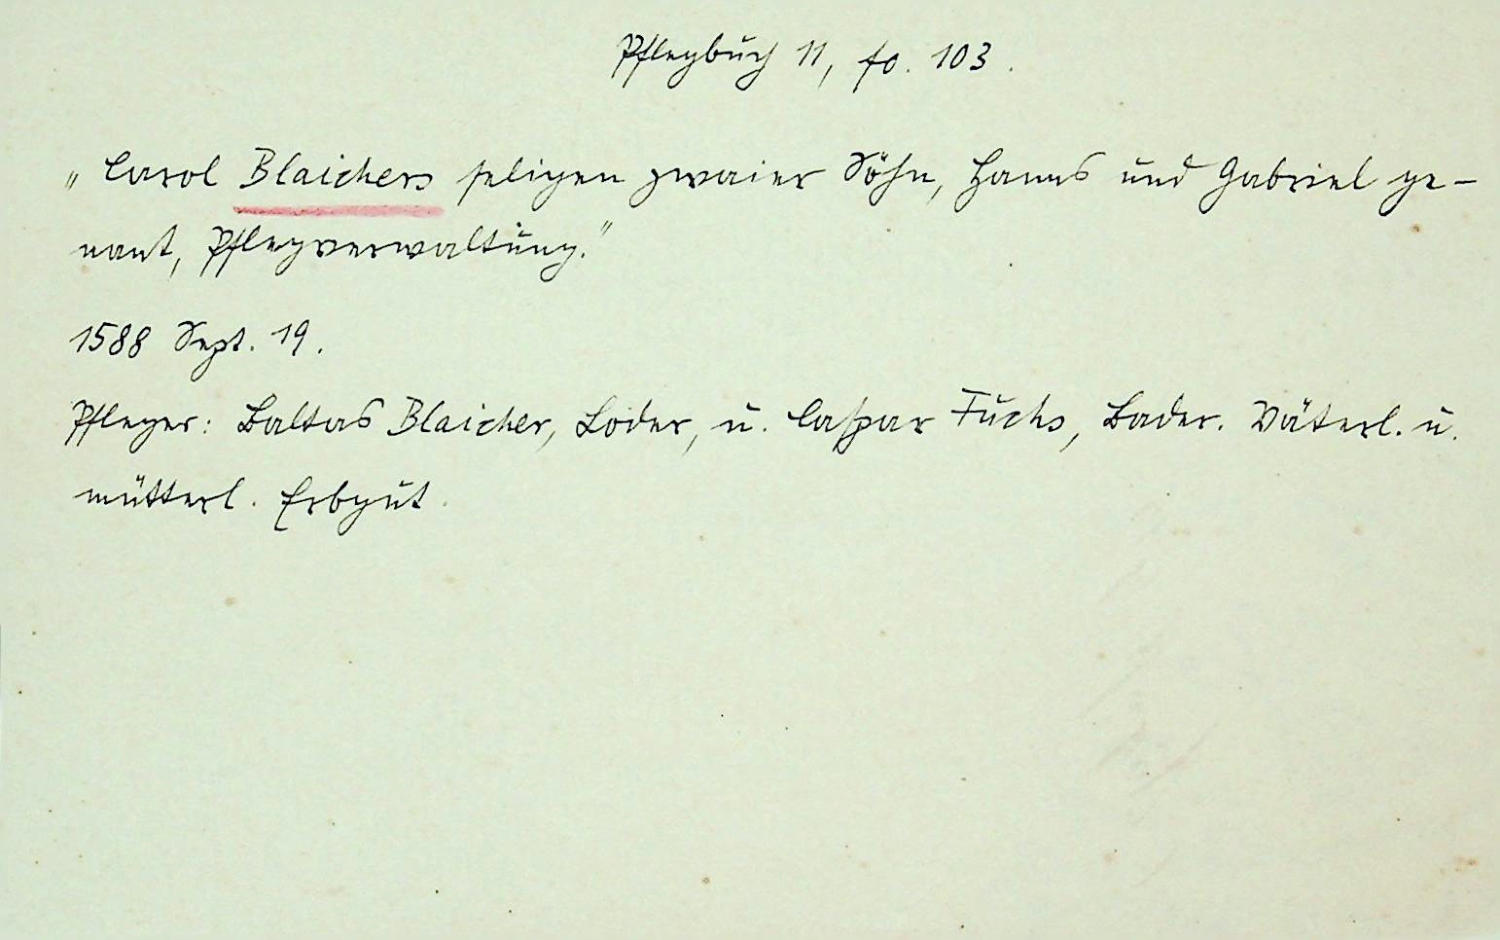 Pflegbuch 11, fo. 103.
„Carol Blaichers seligen zwaier Söhn, Hanns und Gabriel ge-
nant, Pflegverwaltung."
1588 Sept. 19.
Pfleger: Baltas Blaicher, Loder, u. Caspar Fuchs, Bader. Väterl. u.
mütterl. Erbgut.